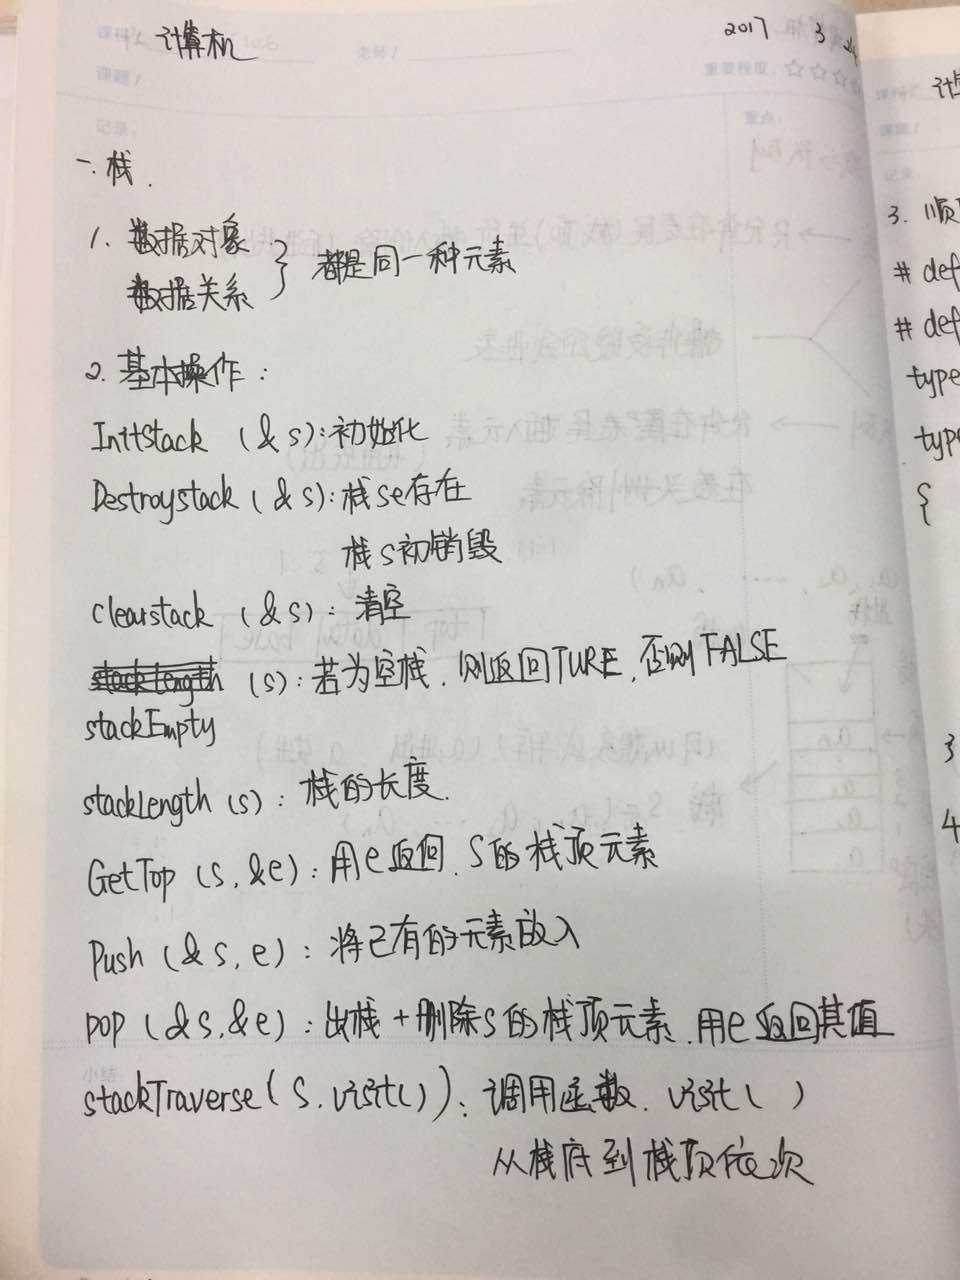 课科: 计算机
老师:
2017 3
课题:
重要程度:
记录:
重点:
一. 栈.
1. 数据对象
数据关系
} 都是同一种元素
2. 基本操作:
InitStack (&s): 初始化
Destroystack (&s): 栈se存在
栈s初销毁
clearstack (&s): 清空
stackLength (s): 若为空栈. 则返回TURE, 否则FALSE
stackEmpty
stackLength (s): 栈的长度.
GetTop (s, &e): 用e返回. S的栈顶元素
Push (&s, e): 将已有的元素放入
pop (&s, &e): 出栈+删除s的栈顶元素. 用e返回其值
小结:
stackTraverse (S. visit()): 调用函数. visit ( )
从栈底到栈顶依次
计
课题:
记录
3. 顺
# def
# def
type
type
{
3
4